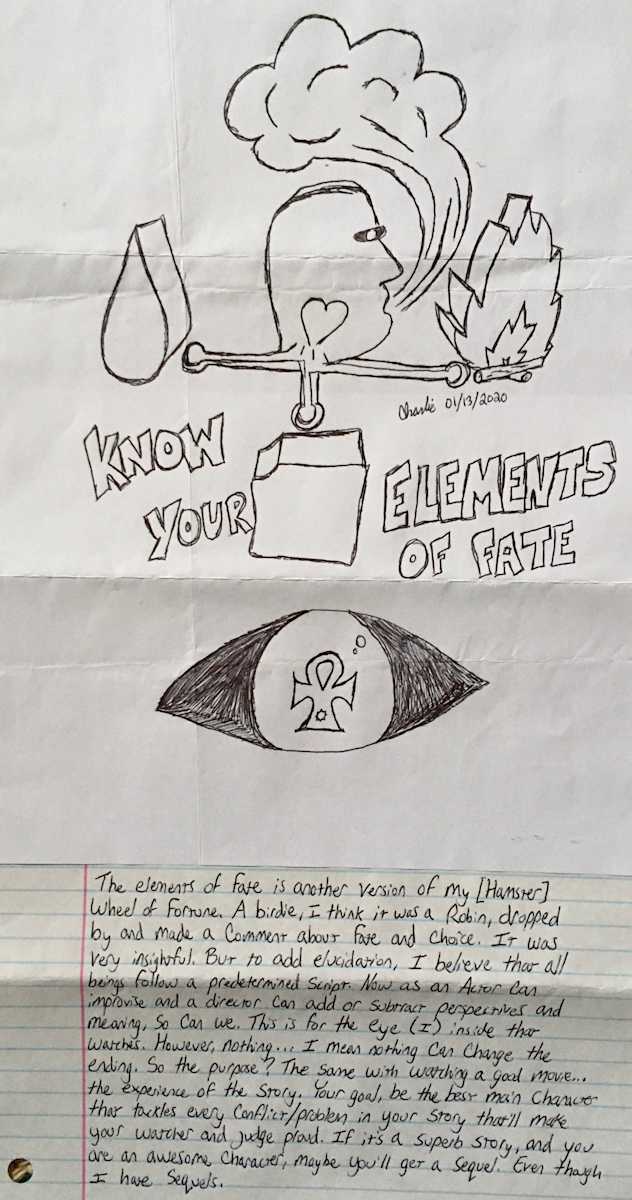 Charlie 01/13/2020
KNOW
YOUR
ELEMENTS
OF FATE
The elements of fate is another version of my [Hamster]
Wheel of Fortune. A birdie, I think it was a Robin, dropped
by and made a comment about fate and choice. It was
very insightful. But to add elucidation, I believe that all
beings follow a predetermined script. Now as an Actor can
improvise and a director can add or subtract perspectives and
meaning, so can we. This is for the eye (I) inside that
watches. However, nothing... I mean nothing can change the
ending. So the purpose? The same with watching a good movie...
the experience of the story. Your goal, be the best main character
that tackles every conflict/problem in your story that'll make
your watcher and judge proud. If it's a superb story, and you
are an awesome character, maybe you'll get a sequel. Even though
I hate sequels.